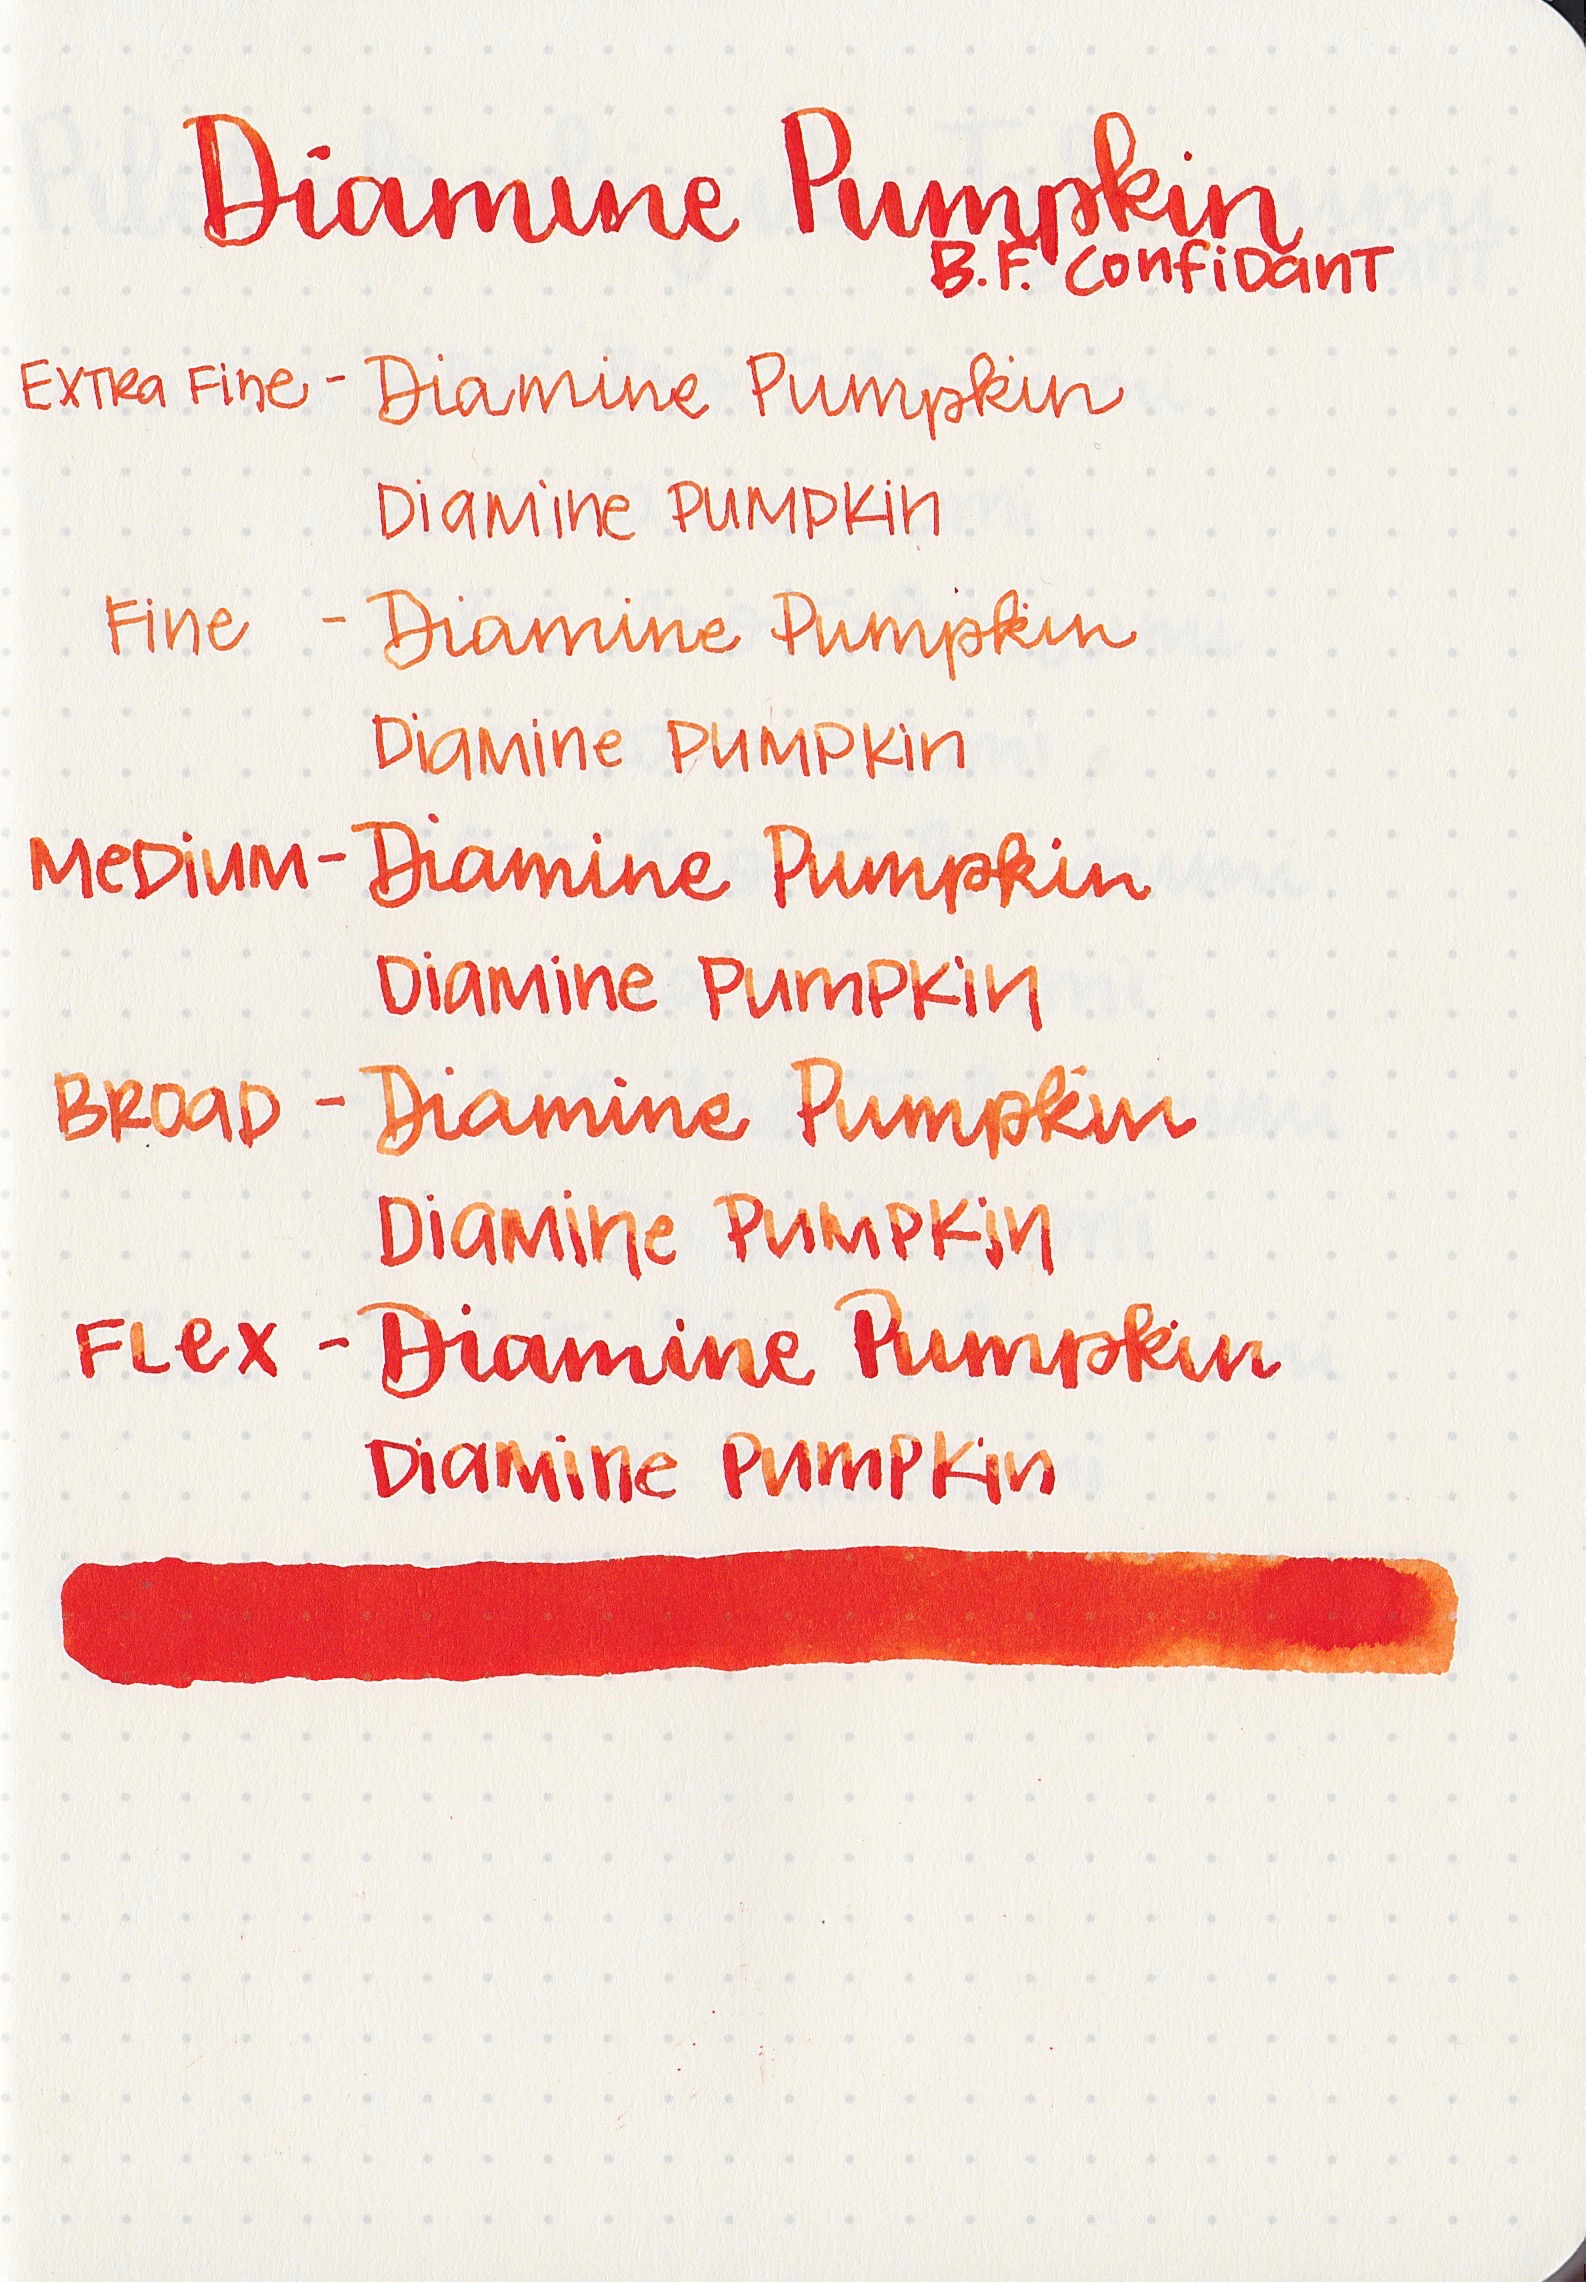 Diamine Pumpkin
B.F. Confidant
Extra Fine - Diamine Pumpkin
Diamine Pumpkin
Fine - Diamine Pumpkin
Diamine Pumpkin
Medium - Diamine Pumpkin
Diamine Pumpkin
Broad - Diamine Pumpkin
Diamine Pumpkin
Flex - Diamine Pumpkin
Diamine Pumpkin